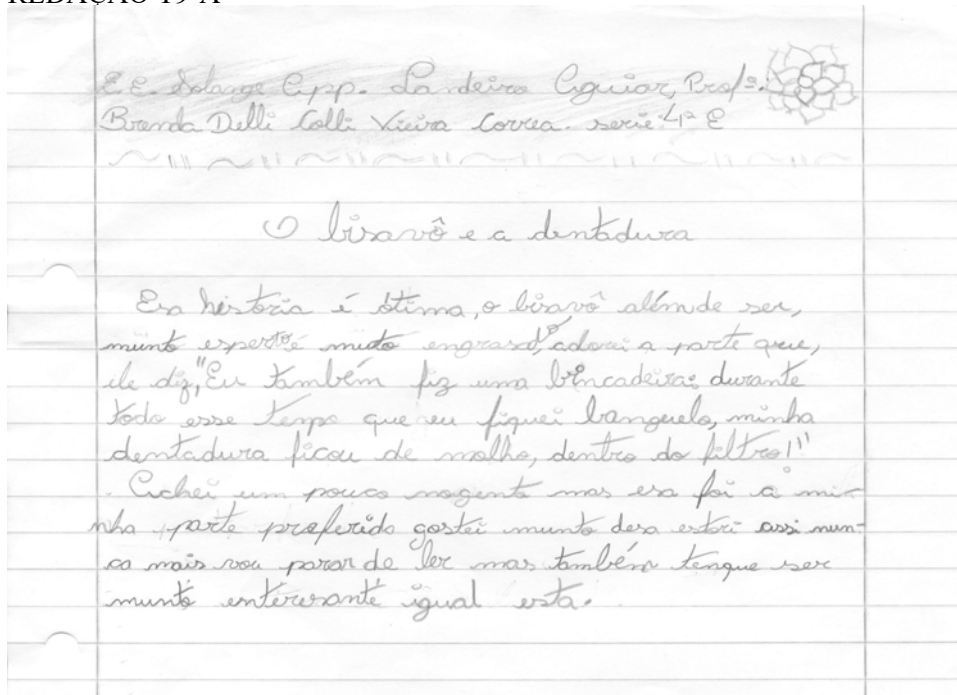 REDAÇÃO 19 A
E.E. Solange Capp. Landeiro Aguiar, Profª.
Brenda Delli Colli Vieira Correa. serie: 4ª E
O bisavô e a dentadura
Esa história é ótima, o bisavô além de ser,
munto esperto é muto engrasado, adorei a parte que,
ele diz, "Eu também fiz uma brincadeira: durante
todo esse tempo que eu fiquei banguelo, minha
dentadura ficou de molho, dentro do filtro!"
Achei um pouco nogento mas esa foi a mi-
nha parte preferido gostei munto desa estori assi nun-
ca mais vou parar de ler mas também tenque ser
munto enteresante igual esta.